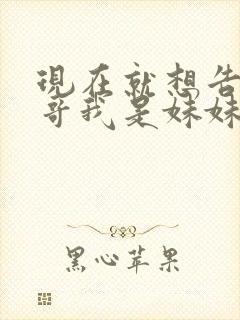 现在就想告
哥我是妹妹
黑心苹果